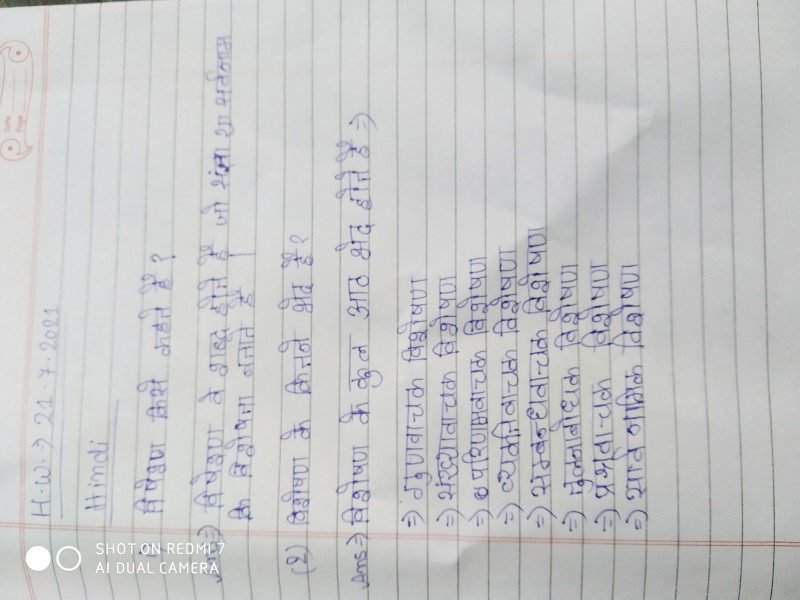 Date
Page
H.W. → 21.7.2021
Hindi
1 विषेशण किसे कहते हैं ?
Ans ⇒ विषेशण वे शब्द होते हैं जो संज्ञा या सर्वनाम
कि विशेषता बताते हैं |
(2) विशेषण के कितने भेद हैं ?
Ans ⇒ विशेषण के कुल आठ भेद होते हैं ⇒
⇒ गुणवाचक विशेषण
⇒ संख्यावाचक विशेषण
⇒ परिणामवाचक विशेषण
⇒ व्यक्तिवाचक विशेषण
⇒ सम्बन्धवाचक विशेषण
⇒ तुलनाबोधक विशेषण
⇒ प्रश्नवाचक विशेषण
⇒ सार्वनामिक विशेषण
SHOT ON REDMI 7
AI DUAL CAMERA